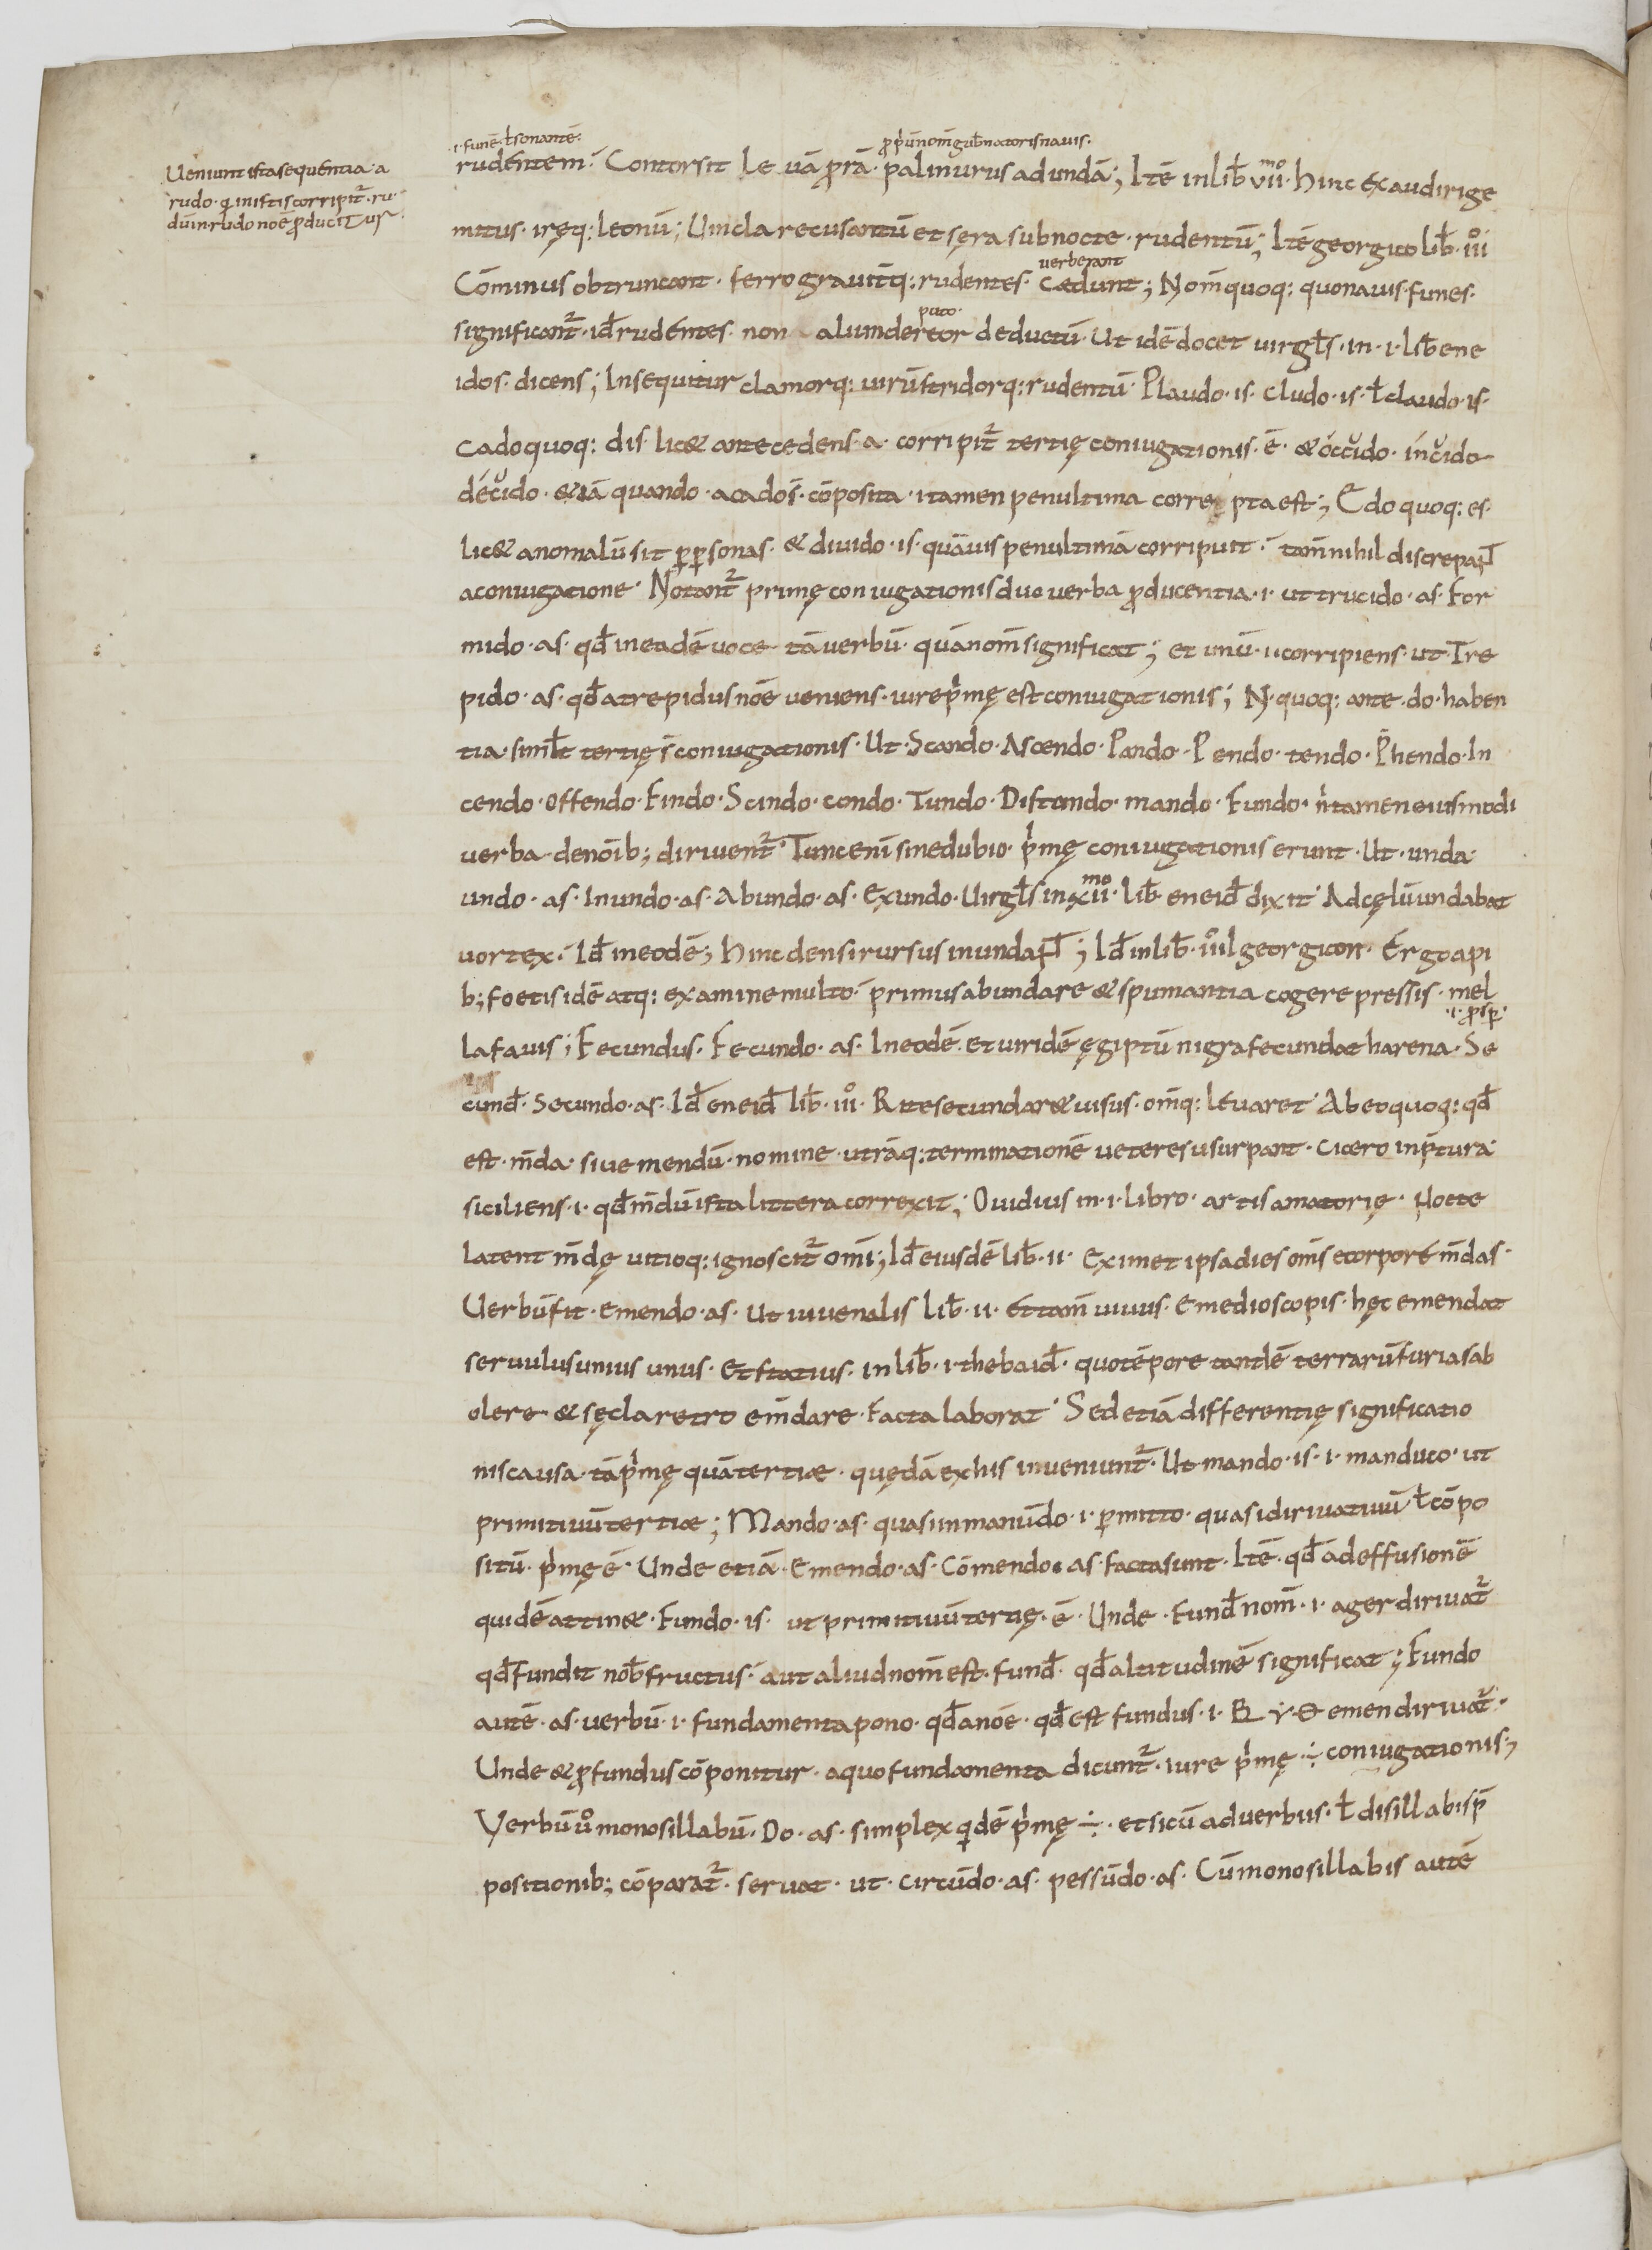 Ueniunt ista sequentia · a
rudo · q̄ in istis corripit᷑ · ru
dūm · rudo nōe ꝓducitur
·i· funē · ł sonantē ·
ꝓpriū nom̄ gub̄natoris nauis ·
rudentem · Contorsit leuā ꝓrā · palinurus ad undā ; Itē in lib̄ vii mo · hinc exaudiri ge
mitus · iręq: leonū ; Uincla recusantū et sęra sub nocte · rudentū ; Itē georgico lib̄ · iii o
verberant
Cōminus obtruncant · ferro grauitq: rudentes · cædunt ; Nom̄ quoq: quo nauis funes ·
puto ·
significant᷑ · id̄ rudéntes · non aliunde reor deductū · Ut idē docet uirgl̄s · in · i · lib̄ ene
idos · dicens ; Insequitur clamorq: uirū stridorq: rudentū · Plaudo · is · cludo · is · ł claudo · is ·
cado quoq: dis lic& antecedens · a · corripit᷑ tertię coniugationis · ē · & óccido · íncido
décido · & iā quando · a cado s̄ · cōposita · i tamen penultima correpta est ; Edo quoq: es ·
lic& anomalū sit ꝑ ꝑsonas · & diuido · is · quāuis penultimā corripuit · tam̄ nihil discrepat
a coniugatione · Notant᷑ primę coniugationis duo uerba ꝓducentia · i · ut trucido · as · For
mido · as · qd̄ in eadē uoce tā uerbū · quā nom̄ significat ; et unū · i corripiens · ut · Tre
pido · as · qd̄ a trepidus nōe ueniens · iure p̍mę est coniugationis ; N · quoq: ante · do · haben
tia · simil̄t tertię s̄ coniugationis · Ut · Scando · Ascendo · Pando · Pendo · tendo · P̄hendo · In
cendo · offendo · Findo · Scindo · condo · Tundo · Distendo · mando · Fundo · n̍ tamen eiusmodi
uerba de nōib; diriuent᷑ · Tunc eni sine dubio · p̍mę coniugationis erunt · Ut · unda
undo · as · Inundo · as · Abundo · as · Exundo · Uirgl̄s in xii mo · lib̄ · eneid̄ dixit · Ad cęlū undabat
uortex · Id̄ in eodē ; hinc densi rursus inundat ; Id̄ in lib̄ · iiii o georgicon · Ergo api
b; foetis idē atq: examine multo · primus abundare & spumantia cogere pressis · mel
·i· ꝓsꝑ ·
la fauis ; Fecundus · Fecundo · as · In eodē · et uiridē ęgiptū nigra fecundat harena · Se
cund̄ · Secundo · as · Id̄ eneid̄ lib̄ · iii o · Rite secundar& uisus · om̄q: leuaret · Ab eo quoq: qd̄
est · m̄da · siue mendū · nomine · utrāq: terminationē ueteres usurpant · Cicero in p̄tura
siciliens · i · qd̄ m̄dū ista littera correxit ; Ouidius in · i · libro · artis amatorię · Nocte
latent m̄dę uitioq: ignoscit᷑ omi ; Id̄ eiusdē lib̄ · ii · Eximet ipsa dies om̄s e corpore m̄das ·
Uerbū fit · Emendo · as · Ut iuuenalis lib̄ · ii · et tam̄ uiuus · E medio scopis · hęc emendat
seruulus unius unus · Et statius · in lib̄ · i thebaid̄ · quo tēpore tandē terrarū furias ab
olere & sęcla retro em̄dare · Facta laborat · Sed etiā differentię significatio
nis causa · tā p̍mę quā tertiæ · quędā ex his inueniunt᷑ · Ut mando · is · i · manduco · ut
primitiuū tertiæ ; Mando · as · quasi in manū do · i · ꝑmitto · quasi diriuatiuū ł cōpo
sitū · p̍mę ē · Unde etiā · Emendo · as · Cōmendo · as · facta sunt · Itē · qd̄ ad effusionē
quidē attin& · Fundo · is · ut primitiuū tertię · ē · Unde · Fund̄ nom̄ · i · ager diriuat᷑
qd̄ fundit nob̄ fructus · aut aliud nom̄ est · fund̄ · qd̄ altitudinē significat ; Fundo
autē · as · uerbū · i · fundamenta pono · qd̄ a nōe · qd̄ est fundus · i · B Y Θ emen diriuat᷑ ·
Unde & ꝓfundus cōponitur · a quo fundamenta dicunt᷑ · iure p̍mę · ÷ coniugationis ;
Verbū u̇o monosillabū · Do · as · simplex q̍dē p̍mę ÷ · et si cū aduerbiis · ł disillabis p̄
positionib; cōparat᷑ · seruat · ut · circūdo · as · pessūdo · as · Cū monosillabis autē